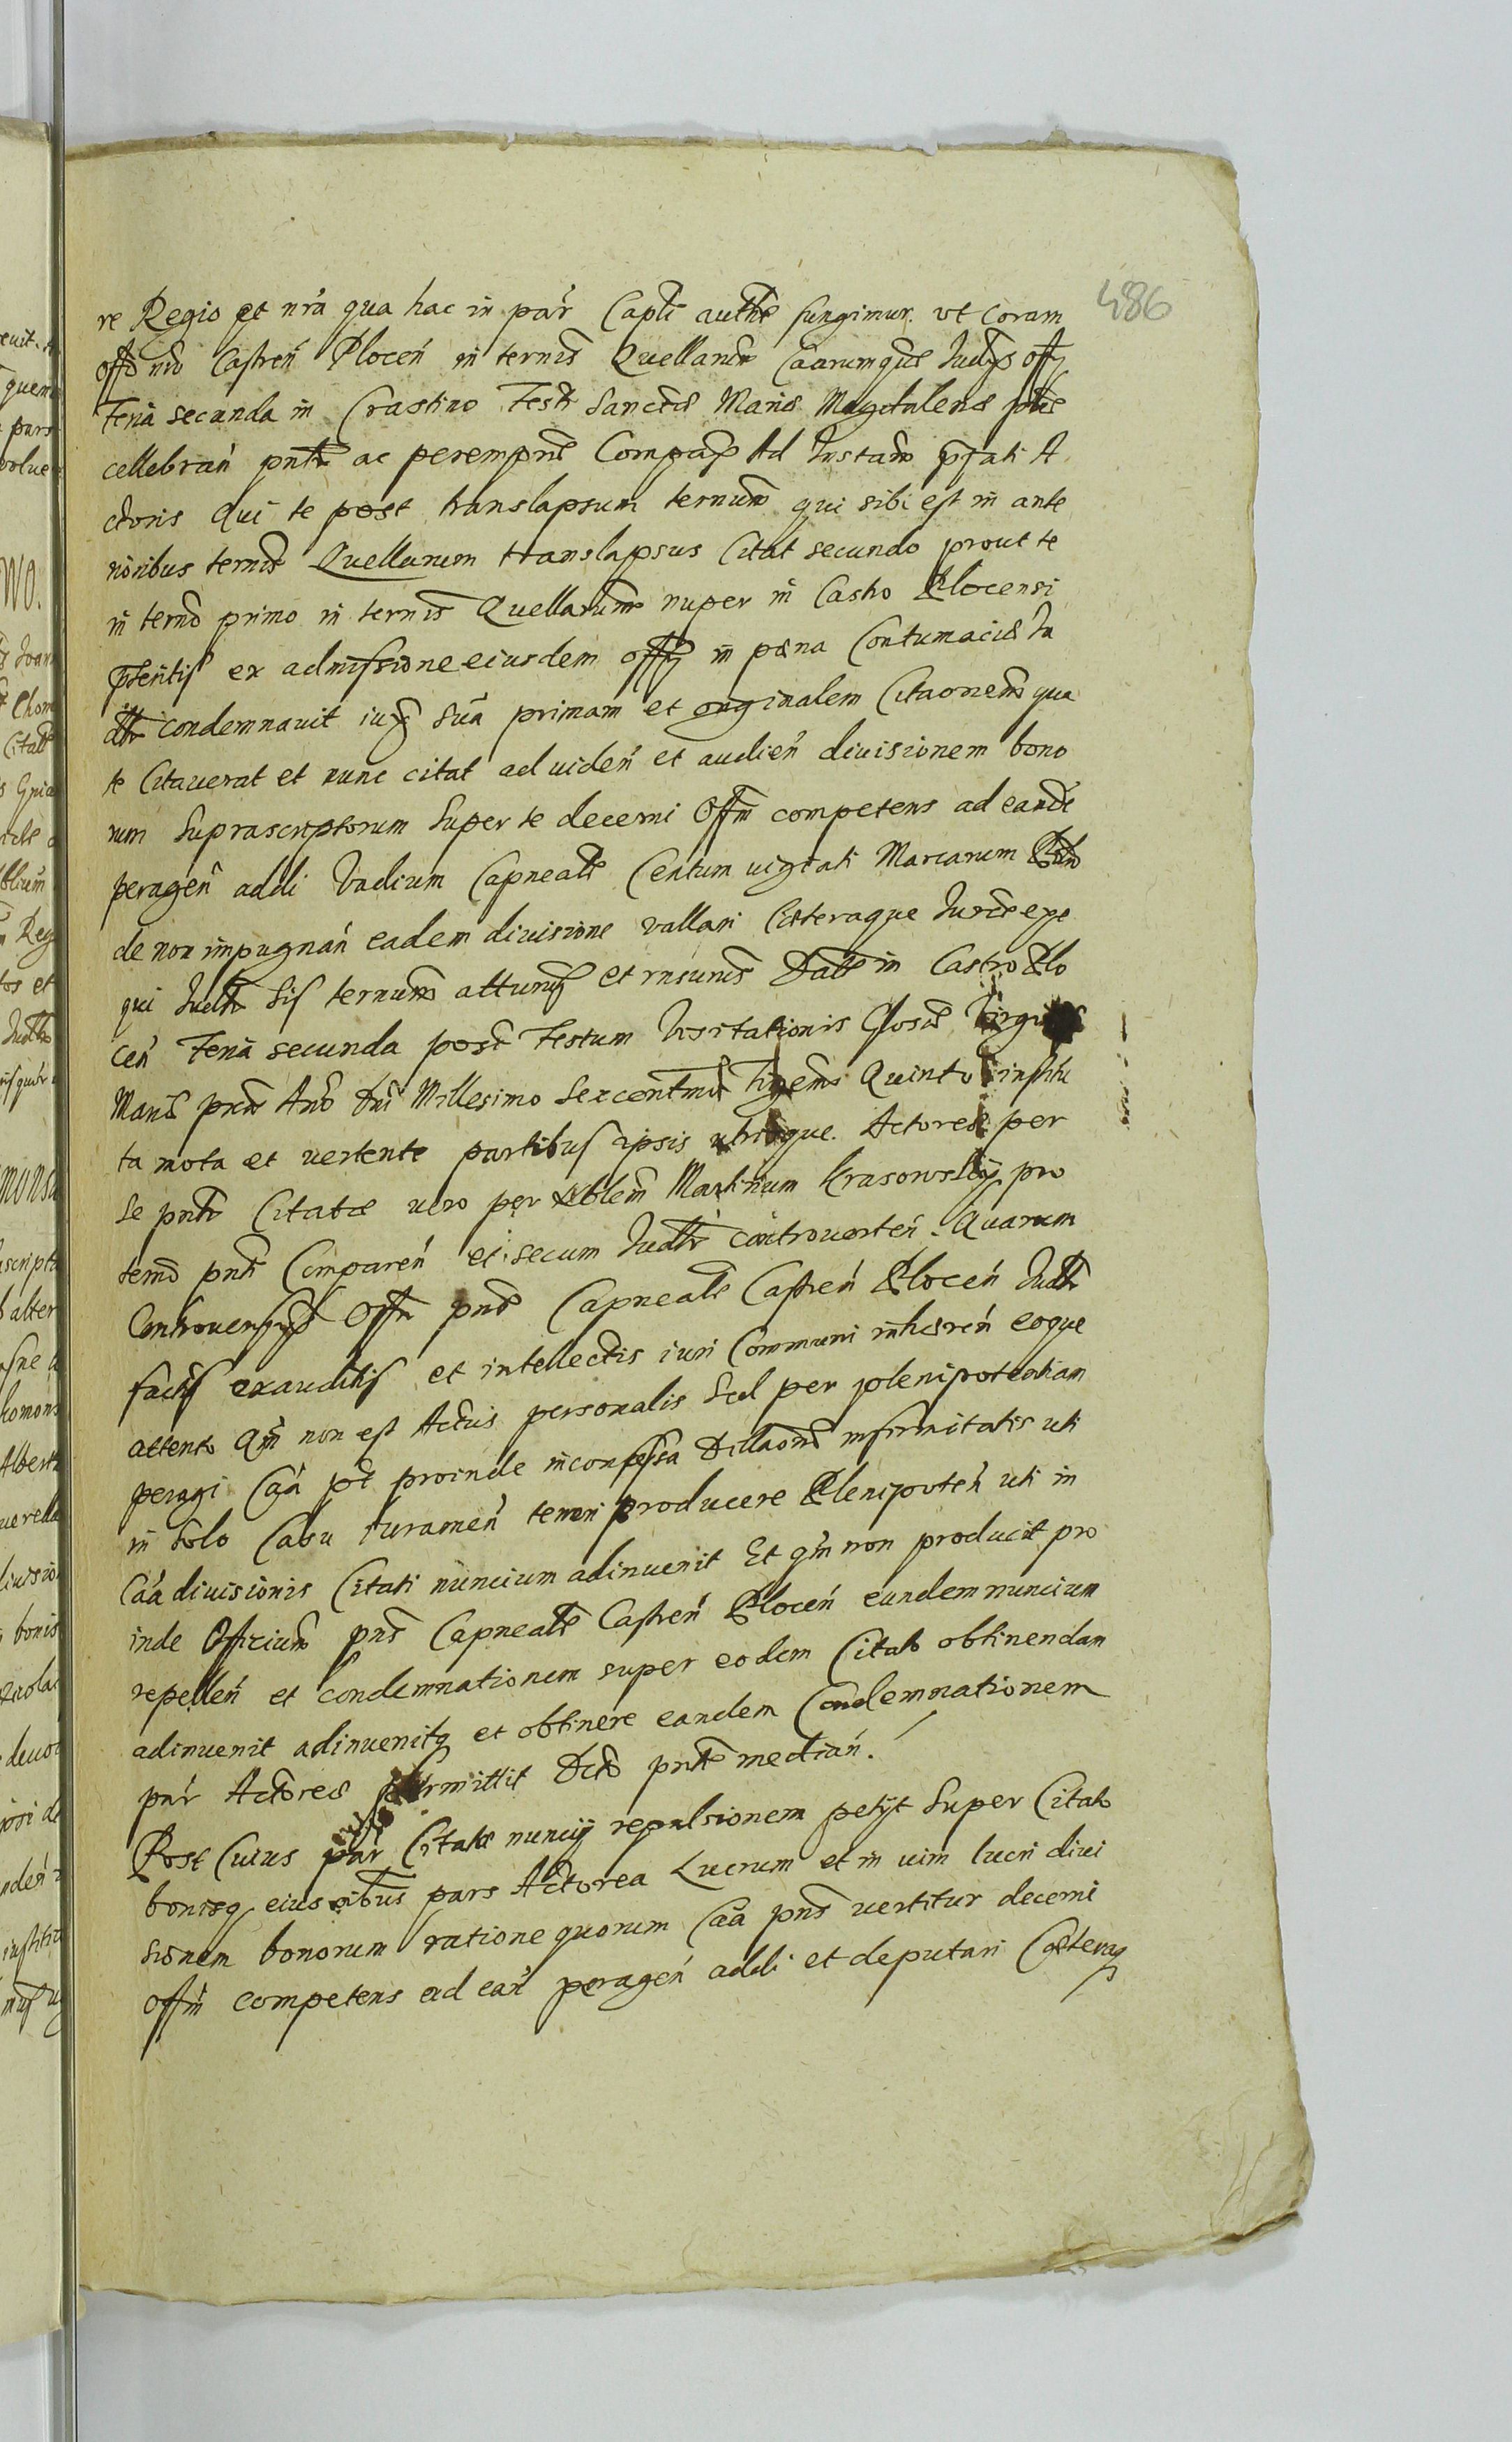 486
re Regio et nr̃a qua hac in par̃ Capli authe fungimur. vt coram
offo nro Castreń Ploceń in ternis Quellarum Caarumque Judy offy
Feria secunda in Crastino Festi Sanctæ Mariæ Magdalenæ
cellebrań pntr ac perempne Comparx Ad Instam pfati A
ctoris Qui te post translapsum termum qui sibi est in ante
rioribus ternis Quellarum translapsus Citat secundo prout te
in termo primo in ternis Quellarum nuper in Castro Plocensi
ex admissione eiusdem offy in pæna Contumaciæ Ju
dtr condemnauit iux Suã primam et originalem Citaonem qua
te Citauerat et nunc citat ad uideń et audień diuisionem bono
rum Suprascriptorum Super te decerni Offm competens ad eande
perageń addi Vadium Capneale Centum viginti Marcarum
de non impugnań eadem diuisione vallari Cæteraque Jurde exe
qui Judtr Sis ternum atturus et rnsurus Datt in Castro Plo
ceń Feria secunda post Festum Visitationis Glosæ
Mariæ Anō Dni Millesimo Sexcentmo Quinto institu
ta mota et vertente partibus ipsis utrisque. Actorea per
se pntr Citata vero per Nblem Martinum Krasowsky pro
termo pntr Compareń et secum Judtr controuerteń. Quarum
Controuersys Offm pns Capneale Castreń Ploceń Judtr
factis exauditis et intellectis iuri Communi inhæreń eoque
attento Qm non est Actus personalis Sed per plenipotentiam
peragi Caã pt proinde inconfessa Dillaone infirmitatis uti
in Solo Casu Juramen̄ teneri producere Plenipoteń uti in
Caã diuisionis Citati nuncium adinuenit Et qm non producit pro
inde Officium pns Capneale Castreń Ploceń eundem nuncium
repelleń et condemnationem super eodem Citato obtinendam
adinuenit adinuenitq et obtinere eandem Condemnationem
par̃ Actoreæ permittit Dcto pnte mediań.
Post Cuius par̃ Citatæ nuncij repulsionem petyt Super Citato
bonisq eius oibus pars Actorea Lucrum et in uim lucri diui
sionem bonorum ratione quorum Caã pns vertitur decerni
Offm competens ad eań perageń addi et deputari Cæteraq